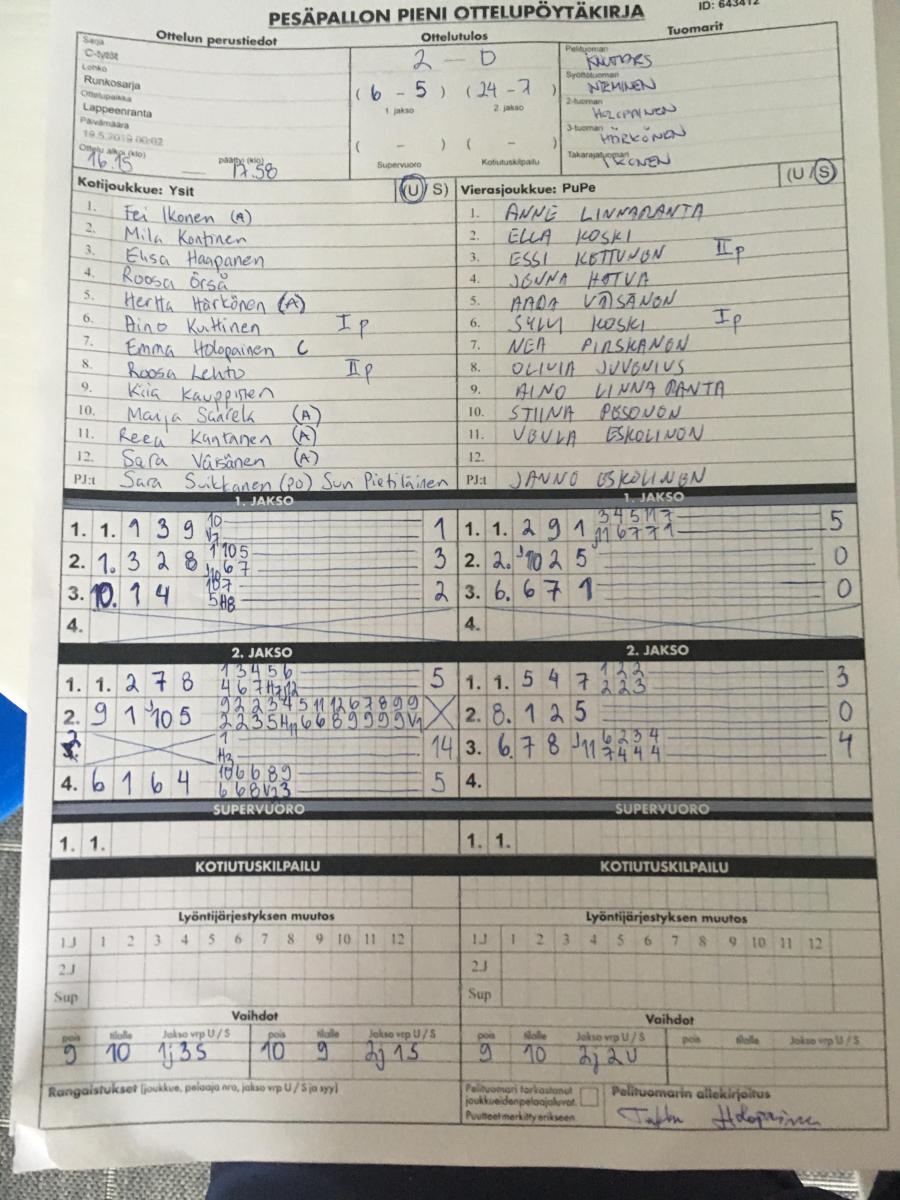 PESÄPALLON PIENI OTTELUPÖYTÄKIRJA
ID: 643412
Ottelun perustiedot
Sarja
C-tytöt
Lohko
Runkosarja
Ottelupaikka
Lappeenranta
Päivämäärä
19.5.2019 00:02
Ottelu alkoi (klo)
16.15
päättyi (klo)
17.58
Ottelutulos
2 — 0
(6 - 5) (24 - 7)
1. jakso 2. jakso
( - ) ( - )
Supervuoro Kotiutuskilpailu
Tuomarit
Pelituomari
Syöttötuomari
NIEMINEN
2-tuomari
HOLOPAINEN
3-tuomari
HÄRKÖNEN
Takarajatuomari
IKONEN
Kotijoukkue: Ysit (U / S)
1. Fei Ikonen (A)
2. Mila Kontinen
3. Elisa Haapanen
4. Roosa Örså
5. Hertta Härkönen (A)
6. Aino Kuittinen I p
7. Emma Holopainen C
8. Roosa Lehto II p
9. Kiia Kauppinen
10. Marja Saarela (A)
11. Reea Kantanen (A)
12. Sara Väisänen (A)
PJ:t Sara Suikkanen (PO) Suvi Pietiläinen
Vierasjoukkue: PuPe (U / S)
1. ANNE LINNARANTA
2. ELLA KOSKI
3. ESSI KETTUNEN II p
4. JENNA HOTVA
5. AADA VÄISÄNEN
6. SYLVI KOSKI I p
7. NEA PIRSKANEN
8. OLIVIA JUVONIUS
9. AINO LINNARANTA
10. STIINA PESONEN
11. VEULA ESKOLINEN
12.
PJ:t JANNE ESKOLINEN
1. JAKSO
1. 1. 1 3 9 10 1
2. 1. 3 2 8 1 10 5 6 7 3
3. 10. 1 4 10 7 5 H8 2
4.
1. JAKSO
1. 1. 2 9 1 3 4 5 11 7 J11 6 7 7 1 5
2. 2. J10 2 5 0
3. 6. 6 7 1 0
4.
2. JAKSO
1. 1. 2 7 8 1 3 4 5 6 4 6 7 H7 J12 5
2. 9 1 J10 5 9 2 2 3 4 5 11 12 6 7 8 9 9 2 2 3 5 H11 6 6 8 9 9 9 9 V1
2 1 H3 14
4. 6 1 6 4 10 6 6 8 9 6 6 8 V2 3 5
2. JAKSO
1. 1. 5 4 7 1 2 2 2 2 3 3
2. 8. 1 2 5 0
3. 6. 7 8 J11 6 2 3 4 7 4 4 4 4
4.
SUPERVUORO
1. 1.
SUPERVUORO
1. 1.
KOTIUTUSKILPAILU
KOTIUTUSKILPAILU
Lyöntijärjestyksen muutos
1J 1 2 3 4 5 6 7 8 9 10 11 12
2J
Sup
Lyöntijärjestyksen muutos
1J 1 2 3 4 5 6 7 8 9 10 11 12
2J
Sup
Vaihdot
pois tilalle Jakso vrp U / S pois tilalle Jakso vrp U / S
9 10 1j 3 S 10 9 2j 1 S
Vaihdot
pois tilalle Jakso vrp U / S pois tilalle Jakso vrp U / S
9 10 2j 2 U
Rangaistukset (joukkue, pelaaja nro, jakso vrp U / S ja syy)
Pelituomari tarkastanut
joukkueiden pelaajaluvat.
Puutteet merkitty erikseen
Pelituomarin allekirjoitus
Holopainen